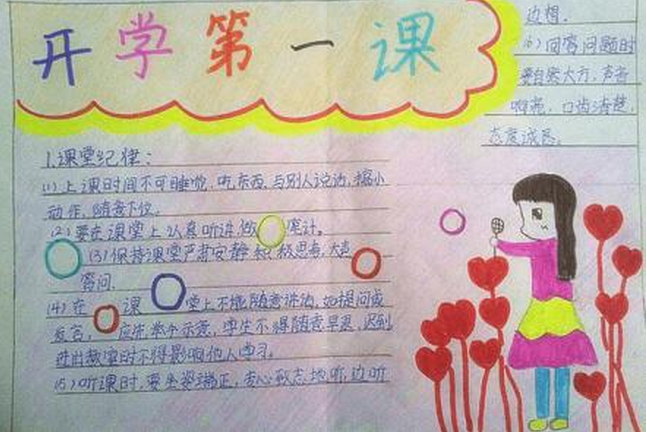 开学第一课
1.课堂纪律：
(1)上课时间不可睡觉，吃东西，与别人说话，搞小
动作，随意下位。
(2)要在课堂上认真听讲，做笔记。
(3)保持课堂严肃安静 积极思考，大声
答问。
(4)在课堂上不能随意讲话，如提问或
发言，应先举手示意，学生不得随意早退，迟到
进时教室时不得影响他人学习。
(5)听课时，要坐姿端正，专心致志地听，边听
边想。
(6)回答问题时
要自然大方，声音
响亮，口齿清楚，
态度诚恳。